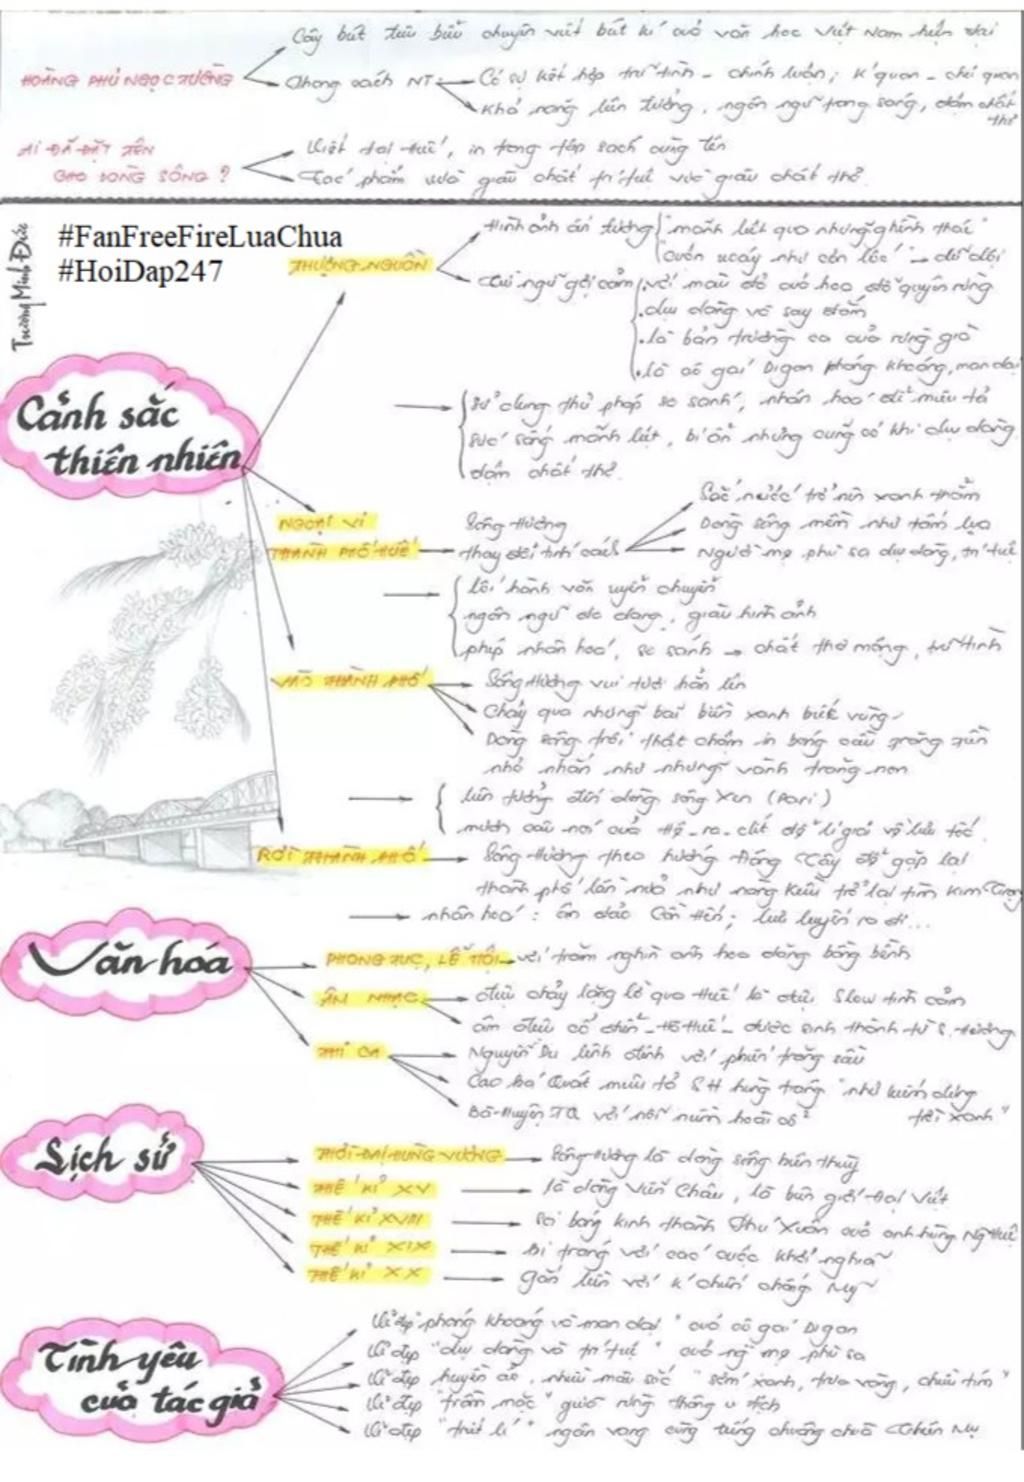 Cây bút tiêu biểu chuyên viết bút kí của văn học Việt Nam hiện đại
HOÀNG PHỦ NGỌC TƯỜNG
Phong cách NT: Có sự kết hợp trữ tình - chính luận; k quan - chủ quan
Khả năng liên tưởng, ngôn ngữ trong sáng, đậm chất thơ
AI ĐÃ ĐẶT TÊN
CHO DÒNG SÔNG ?
Viết tại Huế, in trong tập sách cùng tên
Tác phẩm vừa giàu chất trí tuệ vừa giàu chất thơ.
Trương Minh Đức
#FanFreeFireLuaChua
#HoiDap247
THƯỢNG NGUỒN
Hình ảnh ấn tượng "mãnh liệt qua những ghềnh thác"
"cuộn xoáy như cơn lốc" → dữ dội
Từ ngữ gợi cảm . với màu đỏ của hoa đỗ quyên rừng
. dịu dàng và say đắm
. là bản trường ca của rừng già
. là cô gái Digan phóng khoáng, man dại
Cảnh sắc
thiên nhiên
Sử dụng thủ pháp so sánh, nhân hoá để miêu tả
sức sống mãnh liệt, bí ẩn nhưng cũng có khi dịu dàng
đậm chất thơ.
NGOẠI VI
THÀNH PHỐ HUẾ
Sông Hương
thay đổi tính cách
Sắc nước trở nên xanh thẳm
Dòng sông mềm như tấm lụa
Người mẹ phù sa dịu dàng, trí tuệ
lối hành văn uyển chuyển
ngôn ngữ đa dạng, giàu hình ảnh
phép nhân hoá, so sánh → chất thơ mộng, trữ tình
VÀO THÀNH PHỐ
Sông Hương vui tươi hẳn lên
Chảy qua những bãi biền xanh biếc vùng
Dòng sông trôi thật chậm in bóng cầu tràng tiền
nhỏ nhắn như những vành trăng non
liên tưởng đến dòng sông Xen (Pari)
mượn câu nói của Hê-ra-clit để lí giải về lưu tốc.
RỜI THÀNH PHỐ
Sông Hương theo hướng Đông Tây để gặp lại
thành phố lần nữa như nàng Kiều trở lại tìm Kim Trọng
nhân hoá: ôm đảo Cồn Hến; lưu luyến ra đi...
Văn hóa
PHONG TỤC, LỄ HỘI
với trăm nghìn ánh hoa đăng bồng bềnh
ÂM NHẠC
điệu chảy lặng lờ qua Huế là điệu Slow tình cảm
âm điệu cổ điển - tô Huế - được sinh thành từ S. Hương
THI CA
Nguyễn Du lênh đênh với phiến trăng sầu
Cao Bá Quát miêu tả SH hùng tráng "như kiếm dựng trời xanh"
Bà Huyện TQ với nỗi niềm hoài cổ
Lịch sử
THỜI ĐẠI HÙNG VƯƠNG
Sông Hương là dòng sông biên thuỳ
THẾ KỈ XV
là dòng Viễn Châu, là biên giới Đại Việt
THẾ KỈ XVIII
soi bóng kinh thành Phú Xuân của anh hùng Ng Huệ
THẾ KỈ XIX
bi tráng với các cuộc khởi nghĩa
THẾ KỈ XX
gắn liền với k chiến chống Mỹ
Tình yêu
của tác giả
Vẻ đẹp "phóng khoáng và man dại" của cô gái Digan
Vẻ đẹp "dịu dàng và trí tuệ" của ng mẹ phù sa
Vẻ đẹp huyền ảo, nhiều màu sắc "sớm xanh, trưa vàng, chiều tím"
Vẻ đẹp "trầm mặc" giữa rừng thông u tịch
Vẻ đẹp "triết lí" ngân vang cùng tiếng chuông chùa Thiên Mụ